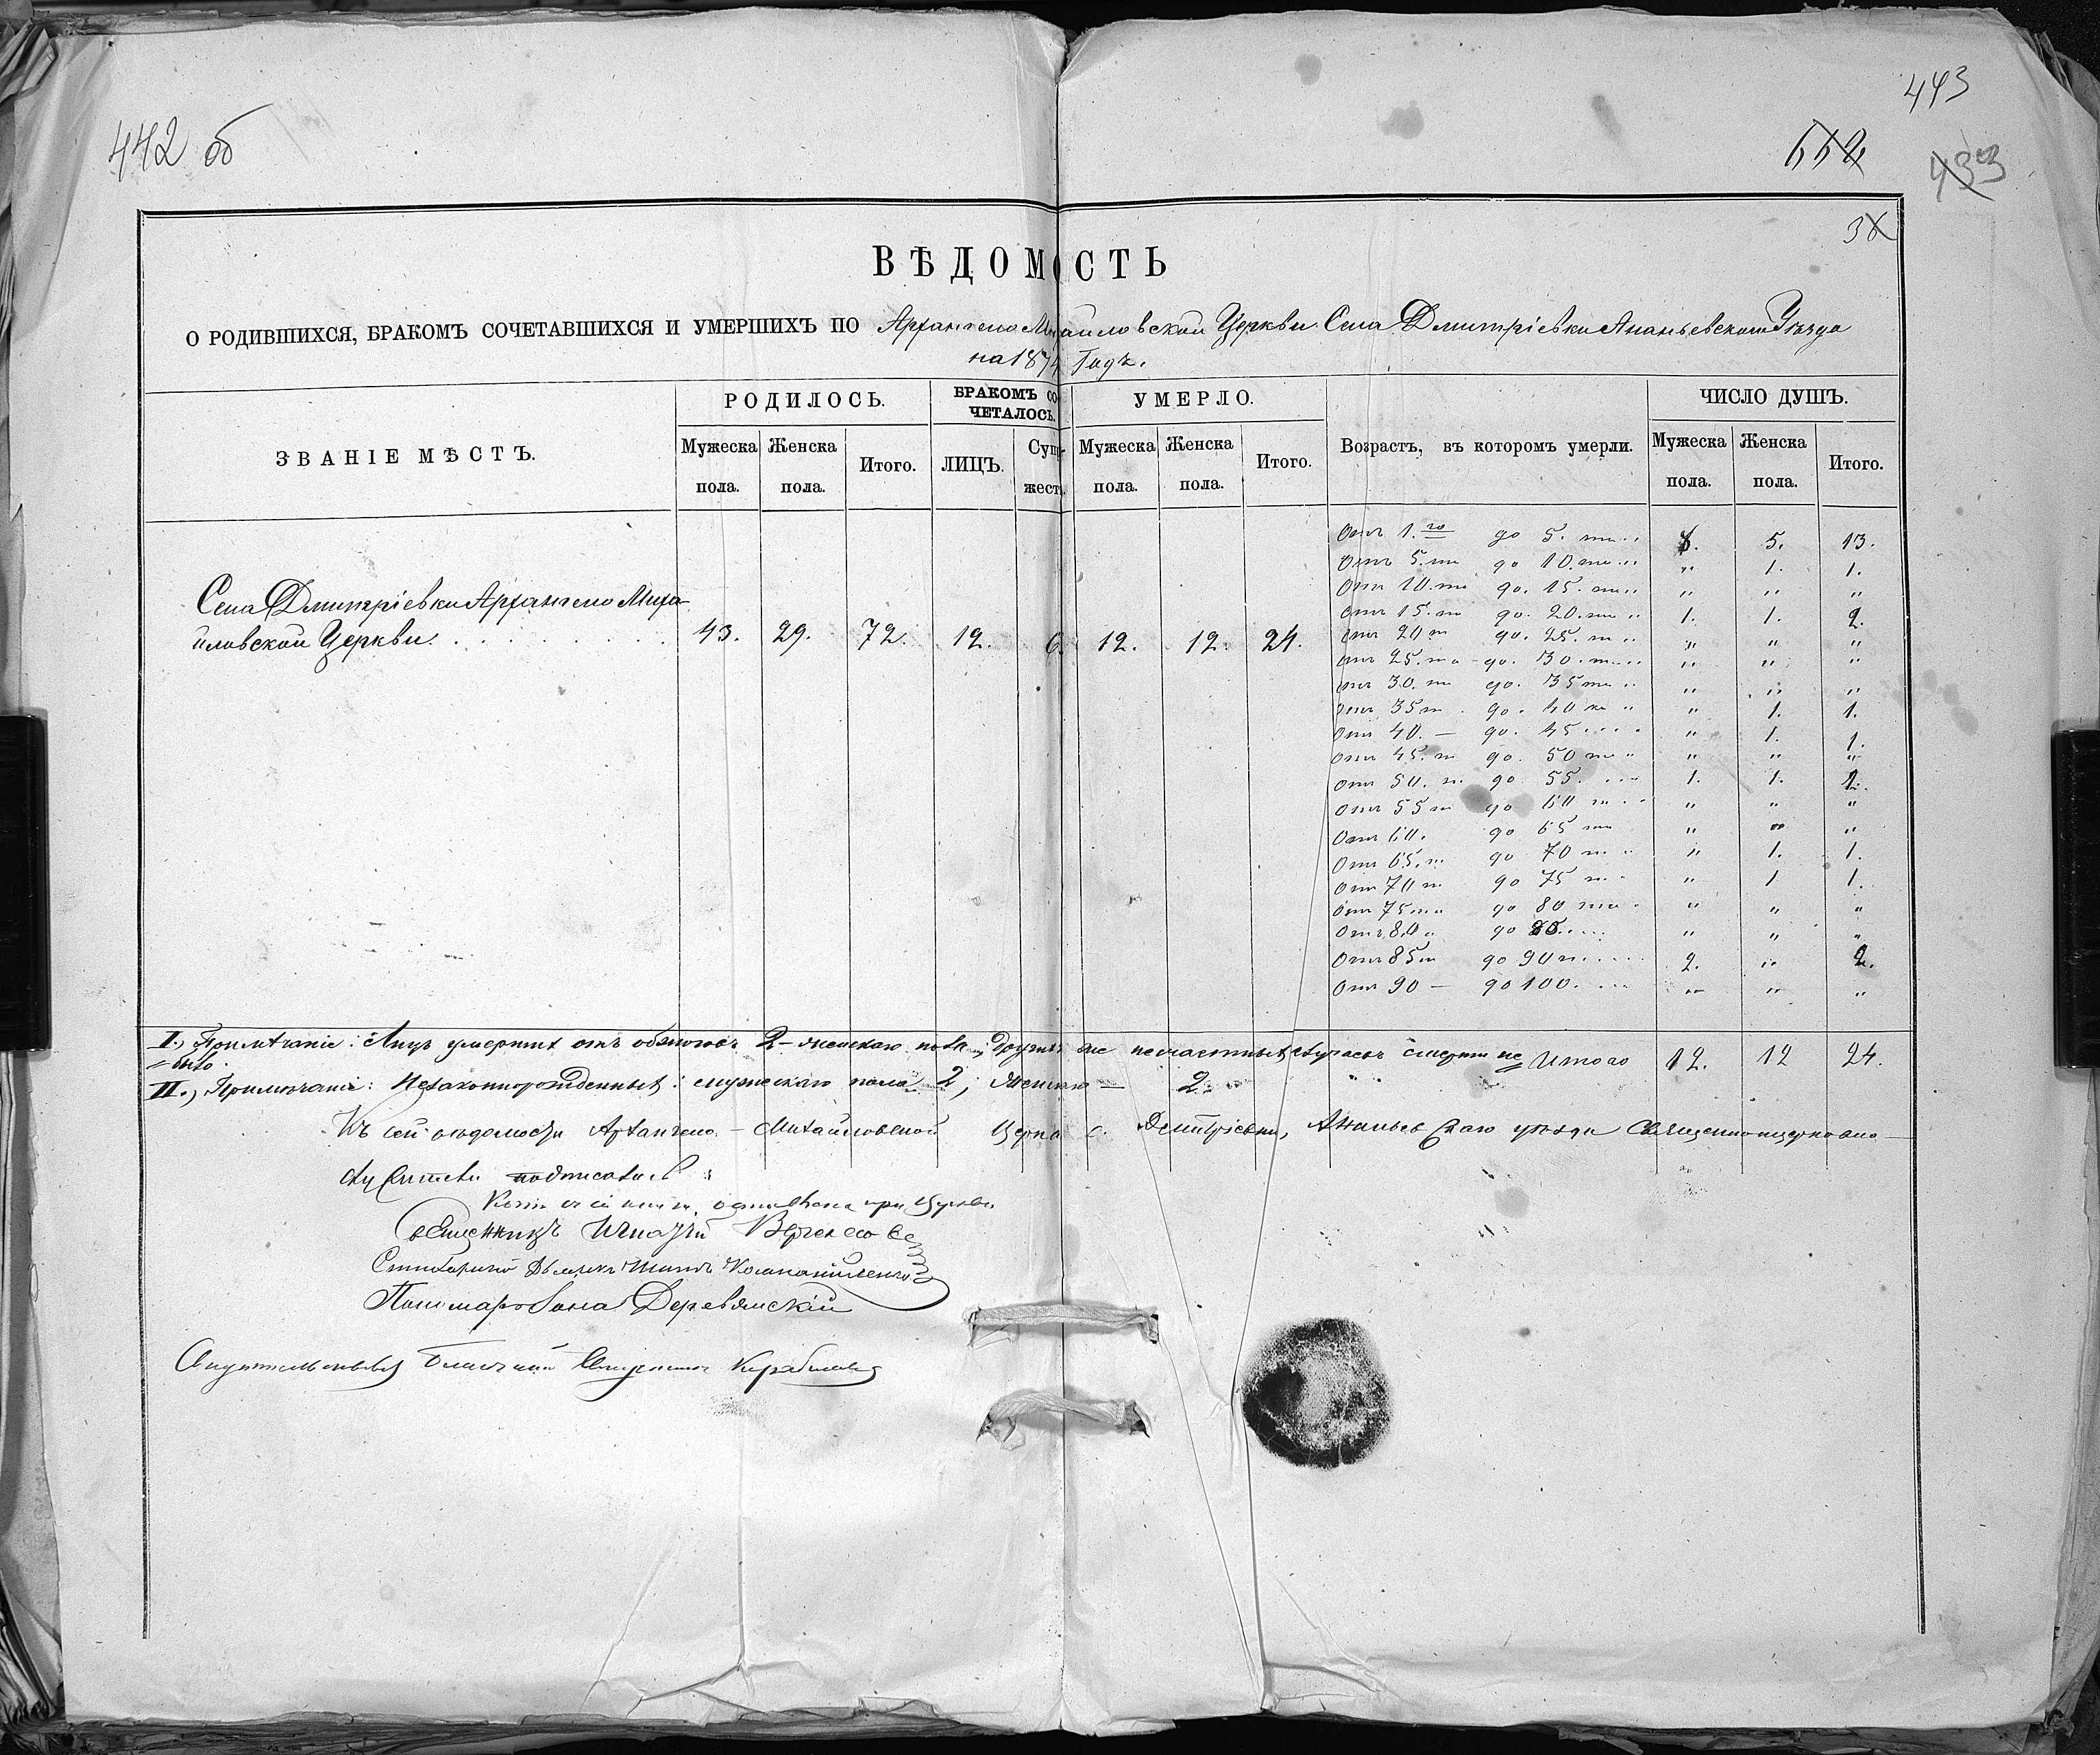 442 об
443
552
433
38
ВѢДОМОСТЬ
О РОДИВШИХСЯ, БРАКОМЪ СОЧЕТАВШИХСЯ И УМЕРШИХЪ ПО Архангело Михайловской Церкви Села Дмитріевки Ананьевскаго Уѣзда
на 1874 Годъ.
ЗВАНІЕ МѢСТЪ.
РОДИЛОСЬ.
БРАКОМЪ СОЧЕТАЛОСЬ.
УМЕРЛО.
Возрастъ, въ которомъ умерли.
ЧИСЛО ДУШЪ.
Мужеска пола. Женска пола. Итого. ЛИЦЪ. Супружествъ. Мужеска пола. Женска пола. Итого. Мужеска пола. Женска пола. Итого.
Села Дмитріевки Архангело Миха
иловской Церкви. 43. 29. 72. 12. 6. 12. 12. 24.
Отъ 1.го до 5. ти „ 8. 5. 13.
Отъ 5. ти до 10. ти „ „ 1. 1.
Отъ 10. ти до. 15. ти „ „ „ „
Отъ 15. ти до. 20. ти „ 1. 1. 2.
Отъ 20 ти до. 25. ти „ „ „ „
Отъ 25. ти до. 30. ти „ „ „ „
Отъ 30. ти до. 35 ти „ „ „ „
Отъ 35 ти до. 40 ти „ „ 1. 1.
Отъ 40. — до. 45 „ 1. 1.
Отъ 45. ти до. 50 ти „ „ „ „
Отъ 50. ти до 55. 1. 1. 2.
Отъ 55 ти до 60 ти „ „ „
Отъ 60. до 65 ти „ „ „
Отъ 65. ти до 70 ти „ 1. 1.
Отъ 70 ти до 75 ти „ 1 1.
Отъ 75 ти до 80 ти „ „ „
Отъ 80 „ до 85. „ „ „
Отъ 85 ти до 90 ти 2. „ 2.
Отъ 90 — до 100. „ „ „
I.) Примѣчаніе: Лицъ умершихъ отъ 2 – женскаго пола; Другихъ же несчастныхъ случаевъ смерти не Итого 12. 12 24.
было.
II.) Примѣчаніе: Незаконнорожденныхъ: мужескаго пола 2, Женскаго — 2.
Къ сей вѣдомости Архангело – Михайловской Церкви с. Дмитріевки, Ананьевскаго уѣзда Священноцерковно-
служители подписались:
Копія сей книги оставлена при Церкви
Священникъ Игнатій
Пономарь Деревянскій
Свидѣтельствовалъ Благочинный Священникъ